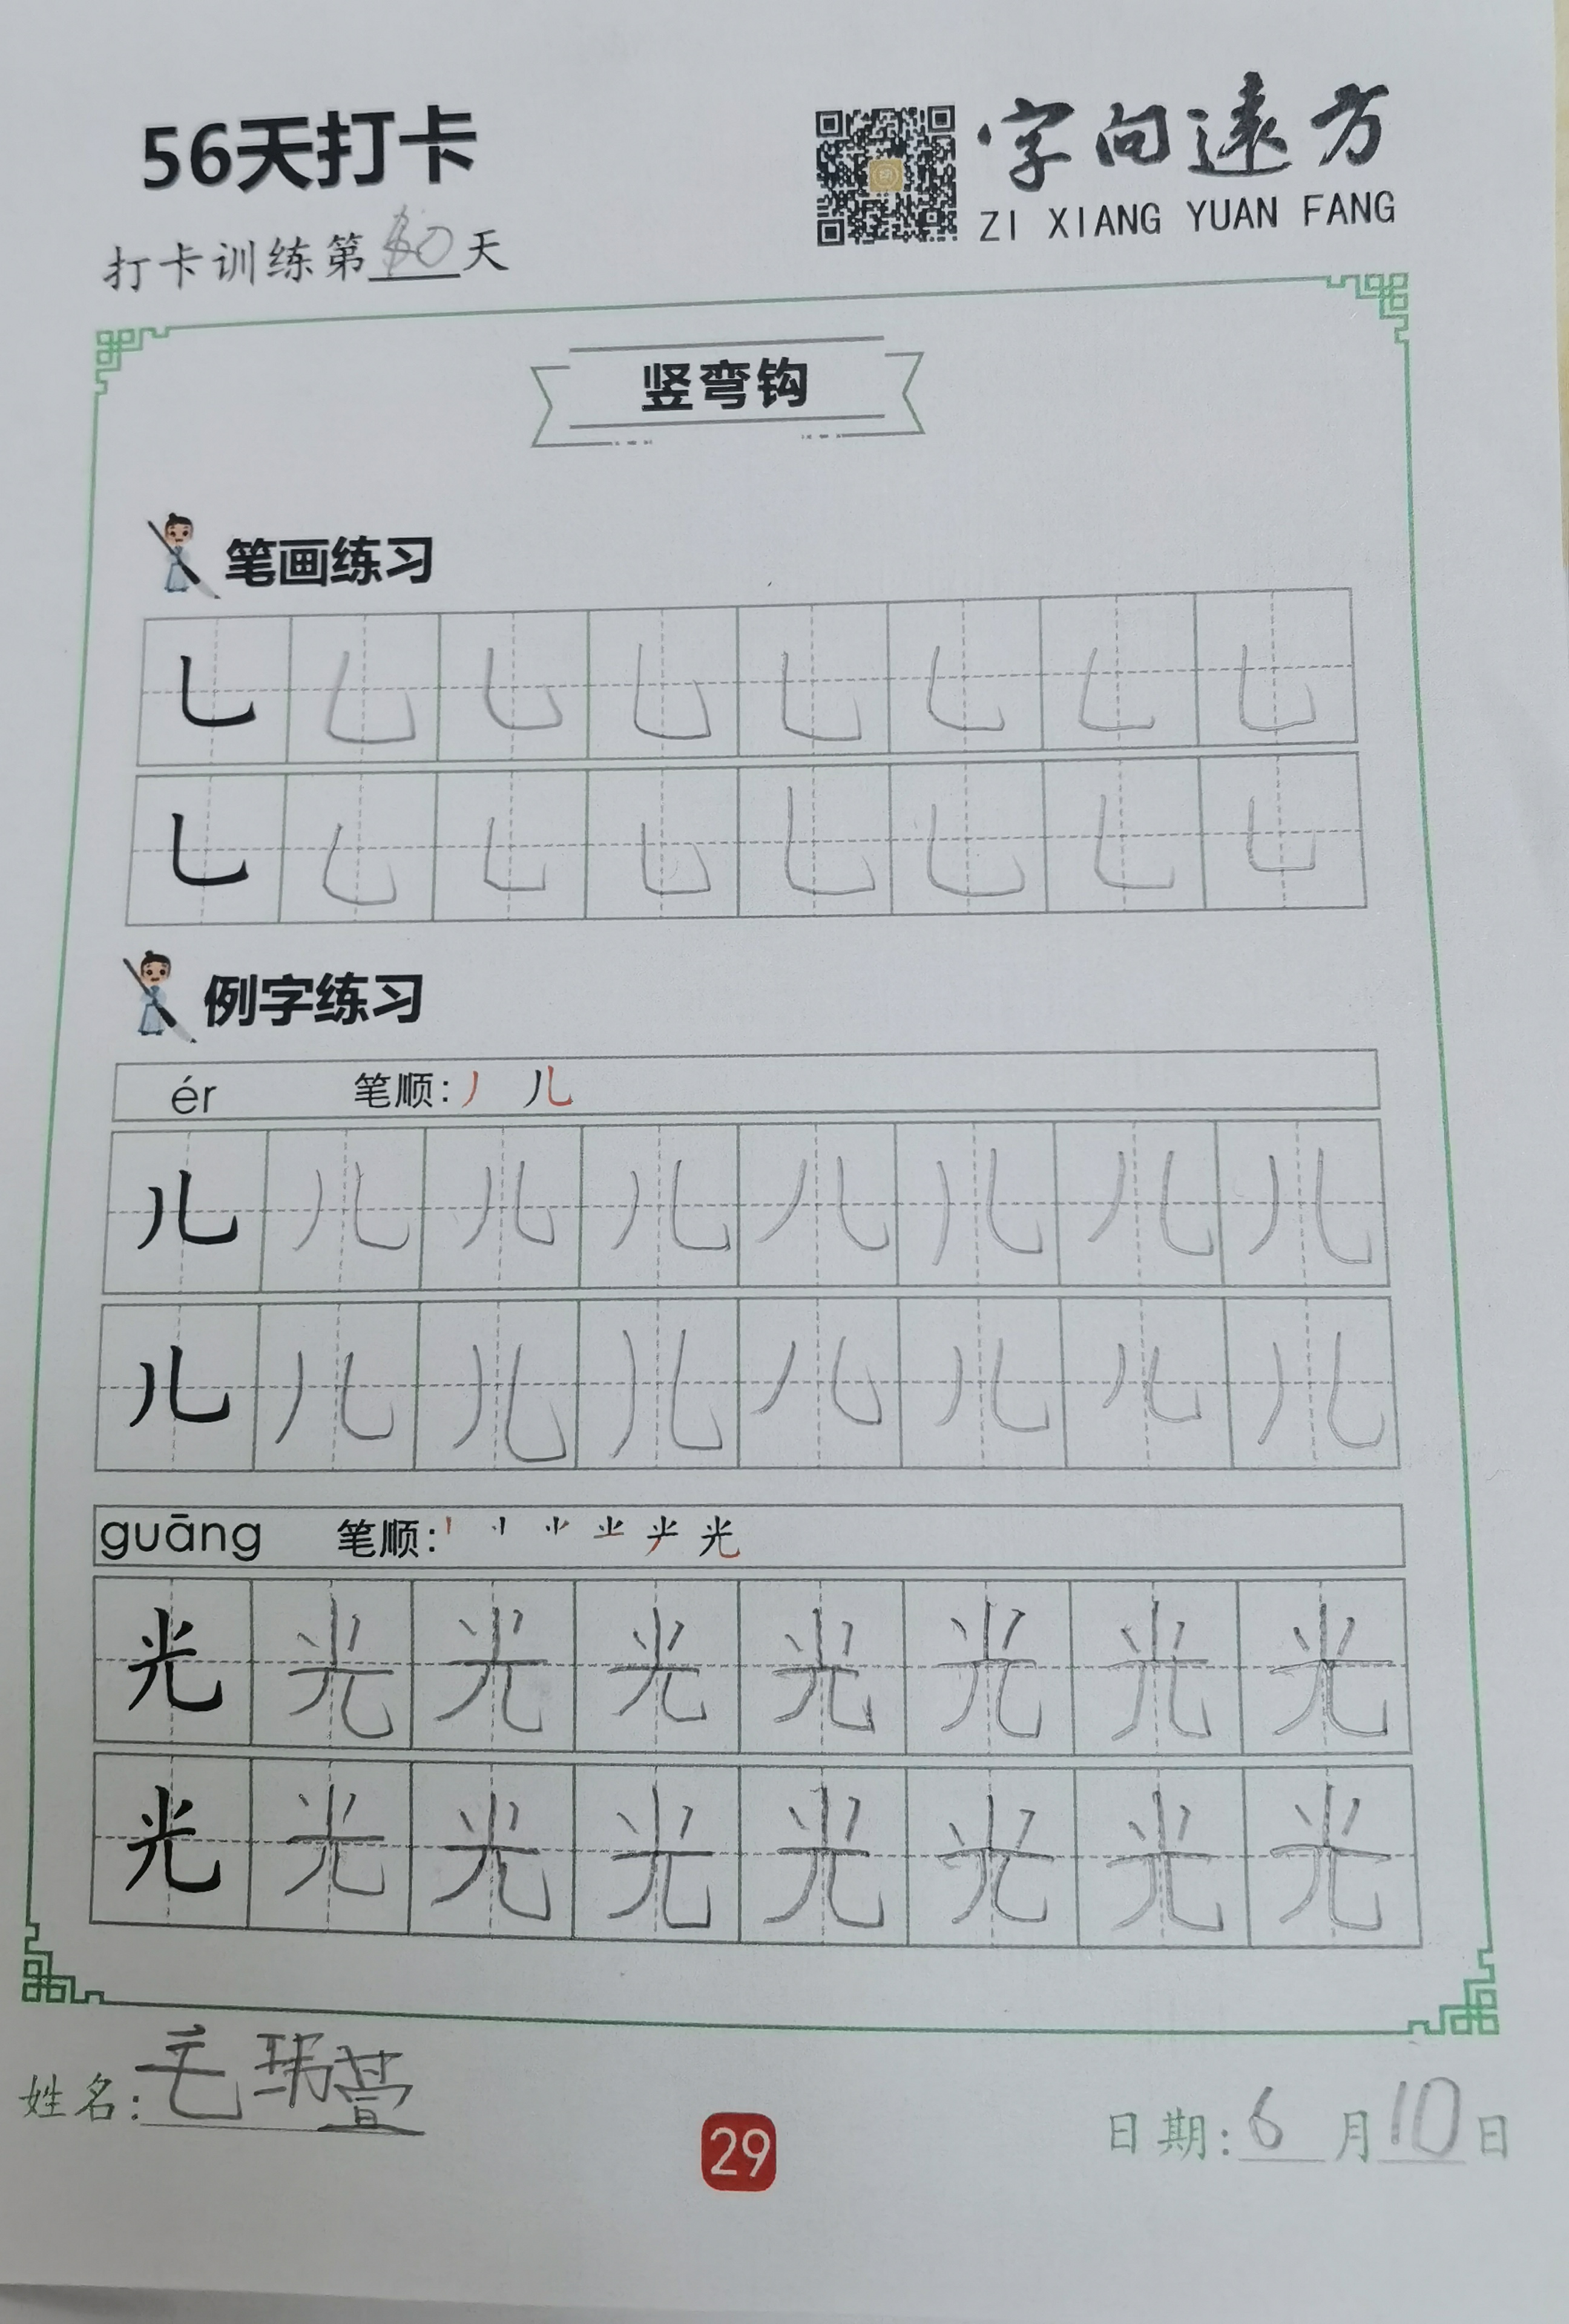 56天打卡
字向遠方
ZI XIANG YUAN FANG
打卡训练第 天
竖弯钩
笔画练习
乚 乚 乚 乚 乚 乚 乚 乚
乚 乚 乚 乚 乚 乚 乚 乚
例字练习
ér 笔顺: 丿 儿
儿 儿 儿 儿 儿 儿 儿 儿
儿 儿 儿 儿 儿 儿 儿 儿
guāng 笔顺: 光
光 光 光 光 光 光 光 光
光 光 光 光 光 光 光 光
姓名: 毛玮萱
29
日期: 6 月 10 日